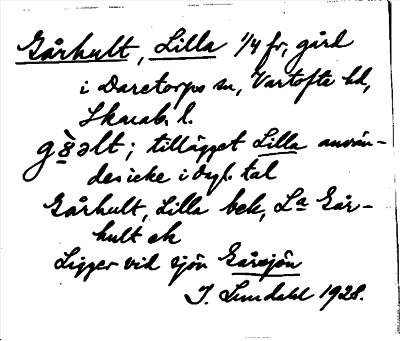 Gårhult, Lilla 1/4 fr, gård
i Daretorps sn, Vartofte hd,
Skarab. l.
tillägget Lilla använ-
des icke i dgl. tal
Gårhult, Lilla bek, La Går-
hult ek
Ligger vid sjön Gårsjön
J. Lundahl 1928.